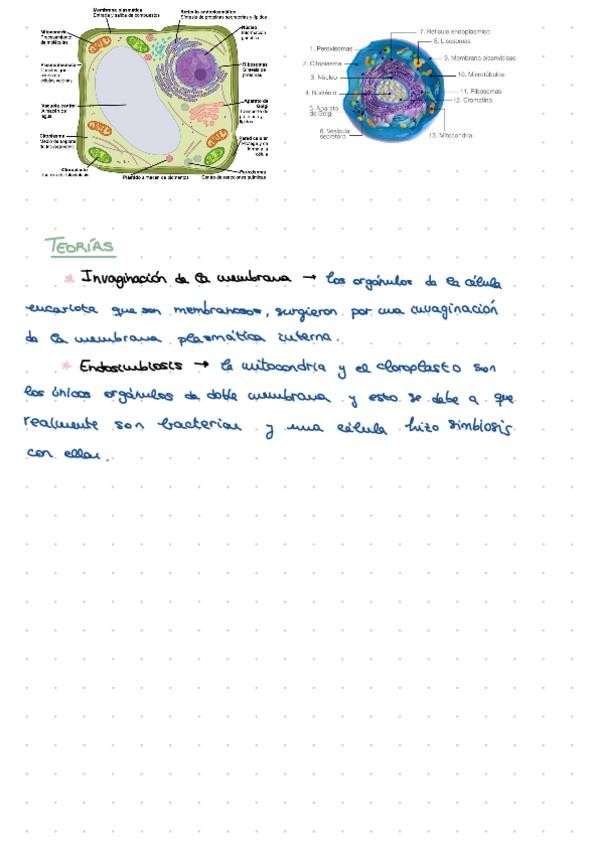 Membrana plasmática
Entrada y salida de compuestos
Retículo endoplasmático
Síntesis de proteínas secretoras y lípidos
Núcleo
Información
genética
Mitocondria
Ribosomas
Síntesis de
proteínas
Vacuola central
Almacén de
agua
Aparato de
Golgi
Pared celular
Citoplasma
Cloroplasto
Peroxisoma
1. Peroxisomas
2. Citoplasma
3. Núcleo
4. Nucléolo
5. Aparato
de Golgi
6. Vesícula
secretora
7. Retículo endoplásmico
8. Lisosomas
9. Membrana plasmática
10. Microtúbulos
11. Ribosomas
12. Cromatina
13. Mitocondria
TEORÍAS
* Invaginación de la membrana → los orgánulos de la célula
eucariota que son membranosos, surgieron por una invaginación
de la membrana plasmática interna.
* Endosimbiosis → la mitocondria y el cloroplasto son
los únicos orgánulos de doble membrana y esto se debe a que
realmente son bacterias y una célula hizo simbiosis
con ellas.